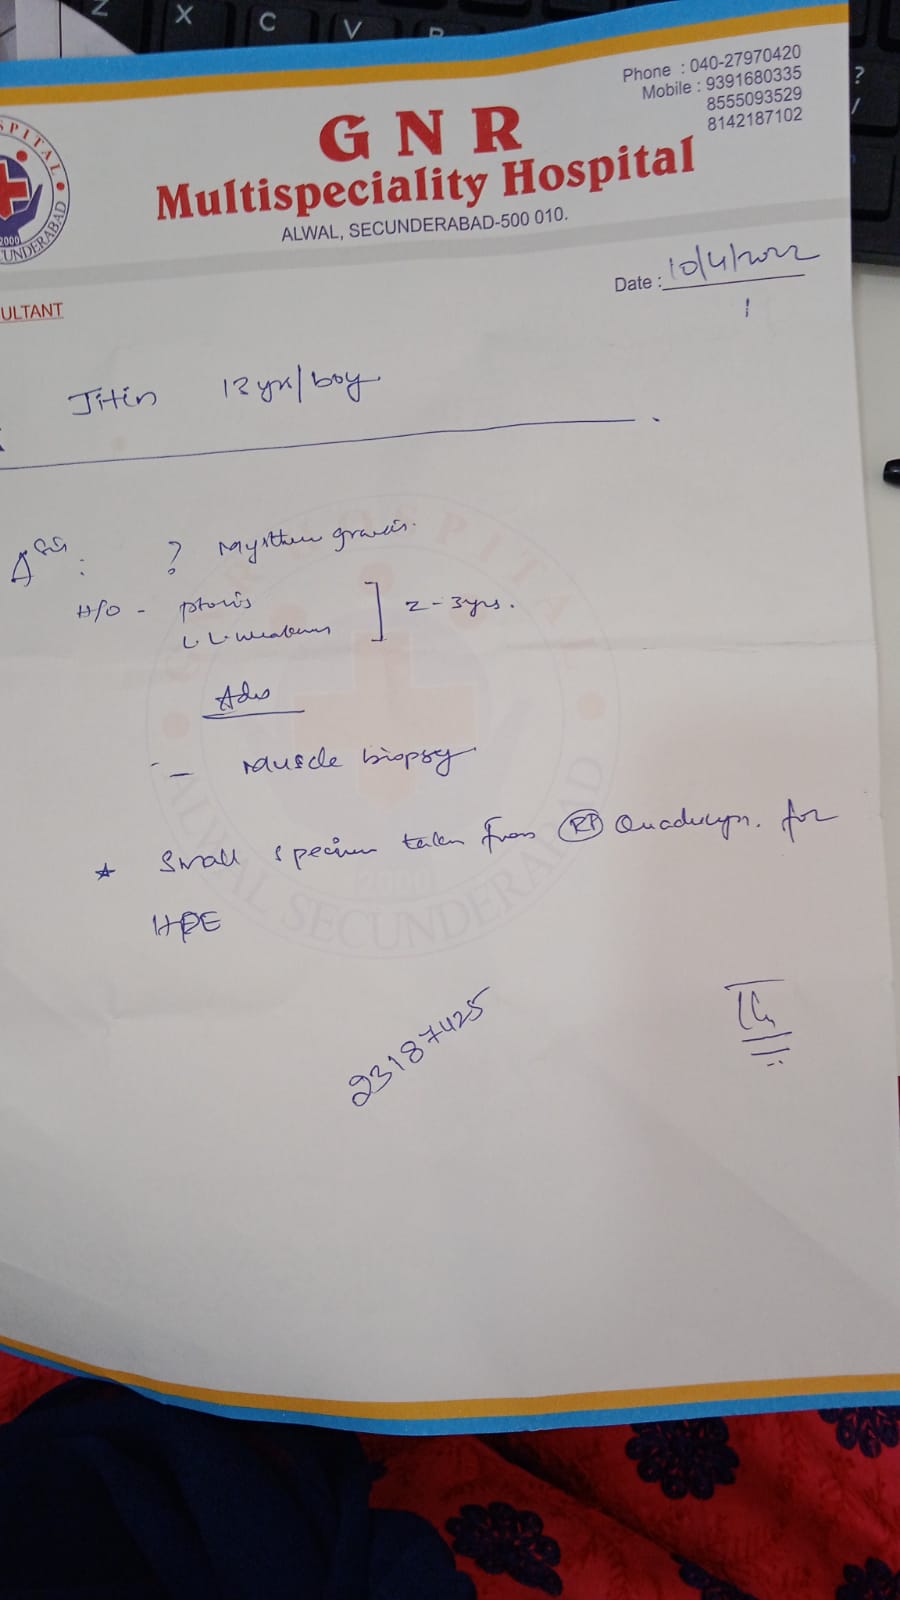 Z X C V B
?
/
Phone : 040-27970420
Mobile : 9391680335
8555093529
8142187102
SPITAL
2000
CUNDERABAD
G N R
Multispeciality Hospital
ALWAL, SECUNDERABAD-500 010.
Date : 10/4/2022
ULTANT
Jitin 12 yrs/boy
? Mysthenia gravis.
H/O - ptosis
L.L. weakness ] 2-3yrs.
Adv
- Muscle biopsy
* Small specimen taken from Rt Quadriceps. for
HPE
23187425
HOSPITAL
ALWAL SECUNDERABAD
2000